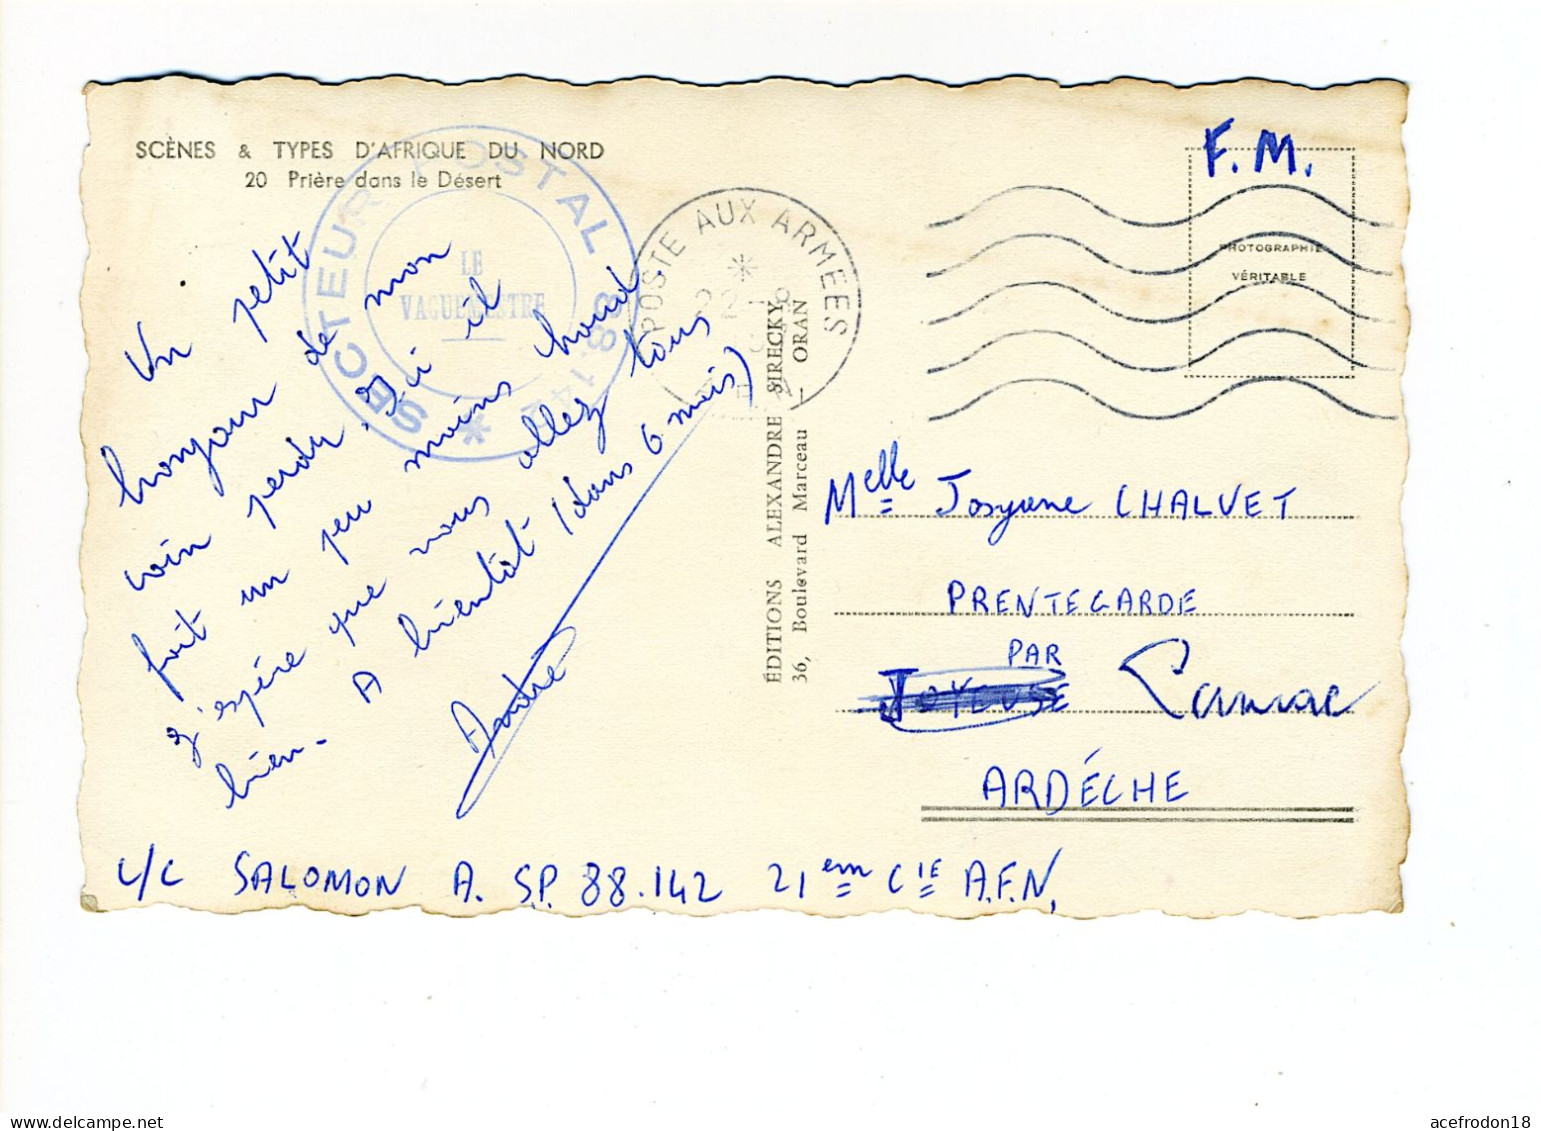 SCÈNES & TYPES D'AFRIQUE DU NORD
20 Prière dans le Désert
SECTEUR POSTAL 88.142
LE
VAGUEMESTRE
POSTE AUX ARMEES
F.M.
PHOTOGRAPHIE
VÉRITABLE
Un petit
bonjour de mon
coin perdu. Ici il
fait un peu moins chaud
J'espére que vous allez tous
bien.
A bientôt (dans 6 mois)
André
ÉDITIONS ALEXANDRE SIRECKY
36, Boulevard Marceau - ORAN
Melle Josyane CHALVET
PRENTEGARDE
PAR
JOYEUSE
ARDÉCHE
SALOMON A. SP. 88.142 21em CIE A.F.N.
acefrodon18